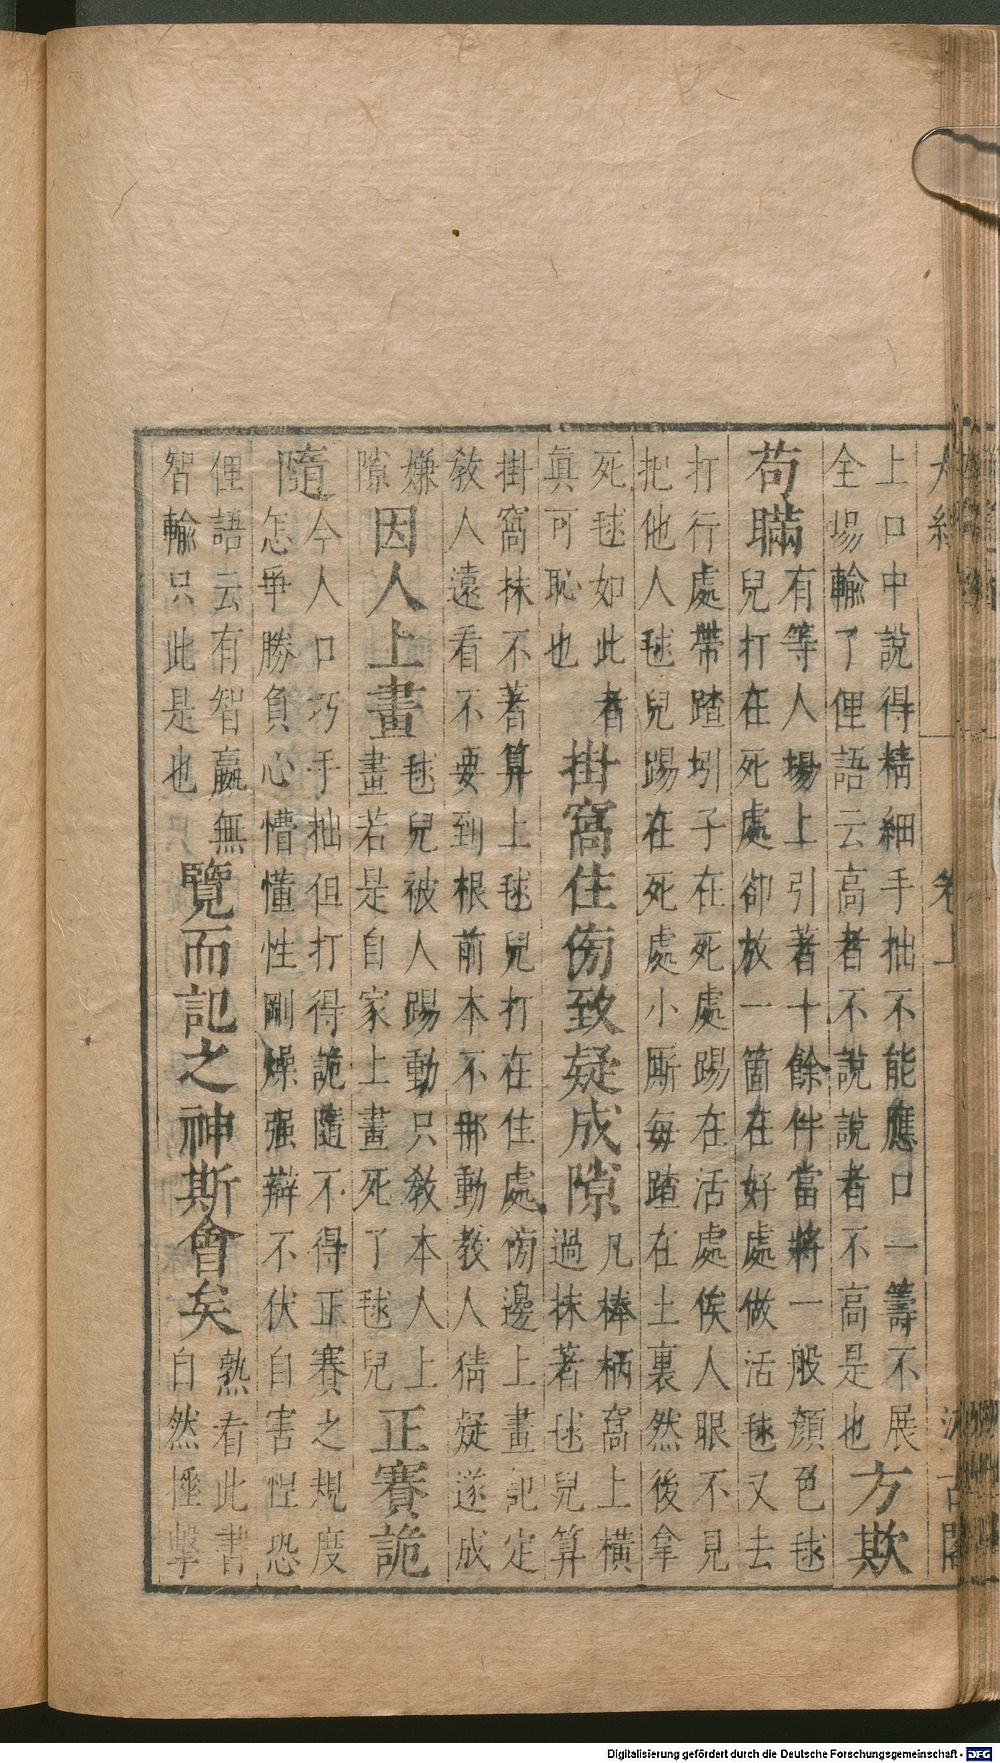 上口中說得精細手拙不能應口一籌不展
全場輸了俚語云高者不說說者不高是也
方欺
苟瞞
有等人場上引著十餘件當將一般顏色毬
兒打在死處卻放一箇在好處做活毬又去
打行處帶蹅㘫子在死處踢在活處俟人眼不見
把他人毬兒踢在死處小厮每蹅在土裏然後拿
死毬如此者
眞可恥也
掛窩住傍致疑成隙
凡棒柄窩上橫
過抹著毬兒算
掛窩抹不著算上毬兒打在住處傍邊上畫記定
敎人遠看不要到根前本不那動教人猜疑遂成
嫌
隙
因人上畫
毬兒被人踢動只敎本人上
畫若是自家上畫死了毬兒
正賽詭
隨
今人口巧手拙但打得詭隨不得正賽之規度
怎爭勝負心懵懂性剛燥强辯不伏自害惶恐
俚語云有智嬴無
智輸只此是也
覽而記之神斯會矣
熟看此書
自然捶擊
卷上